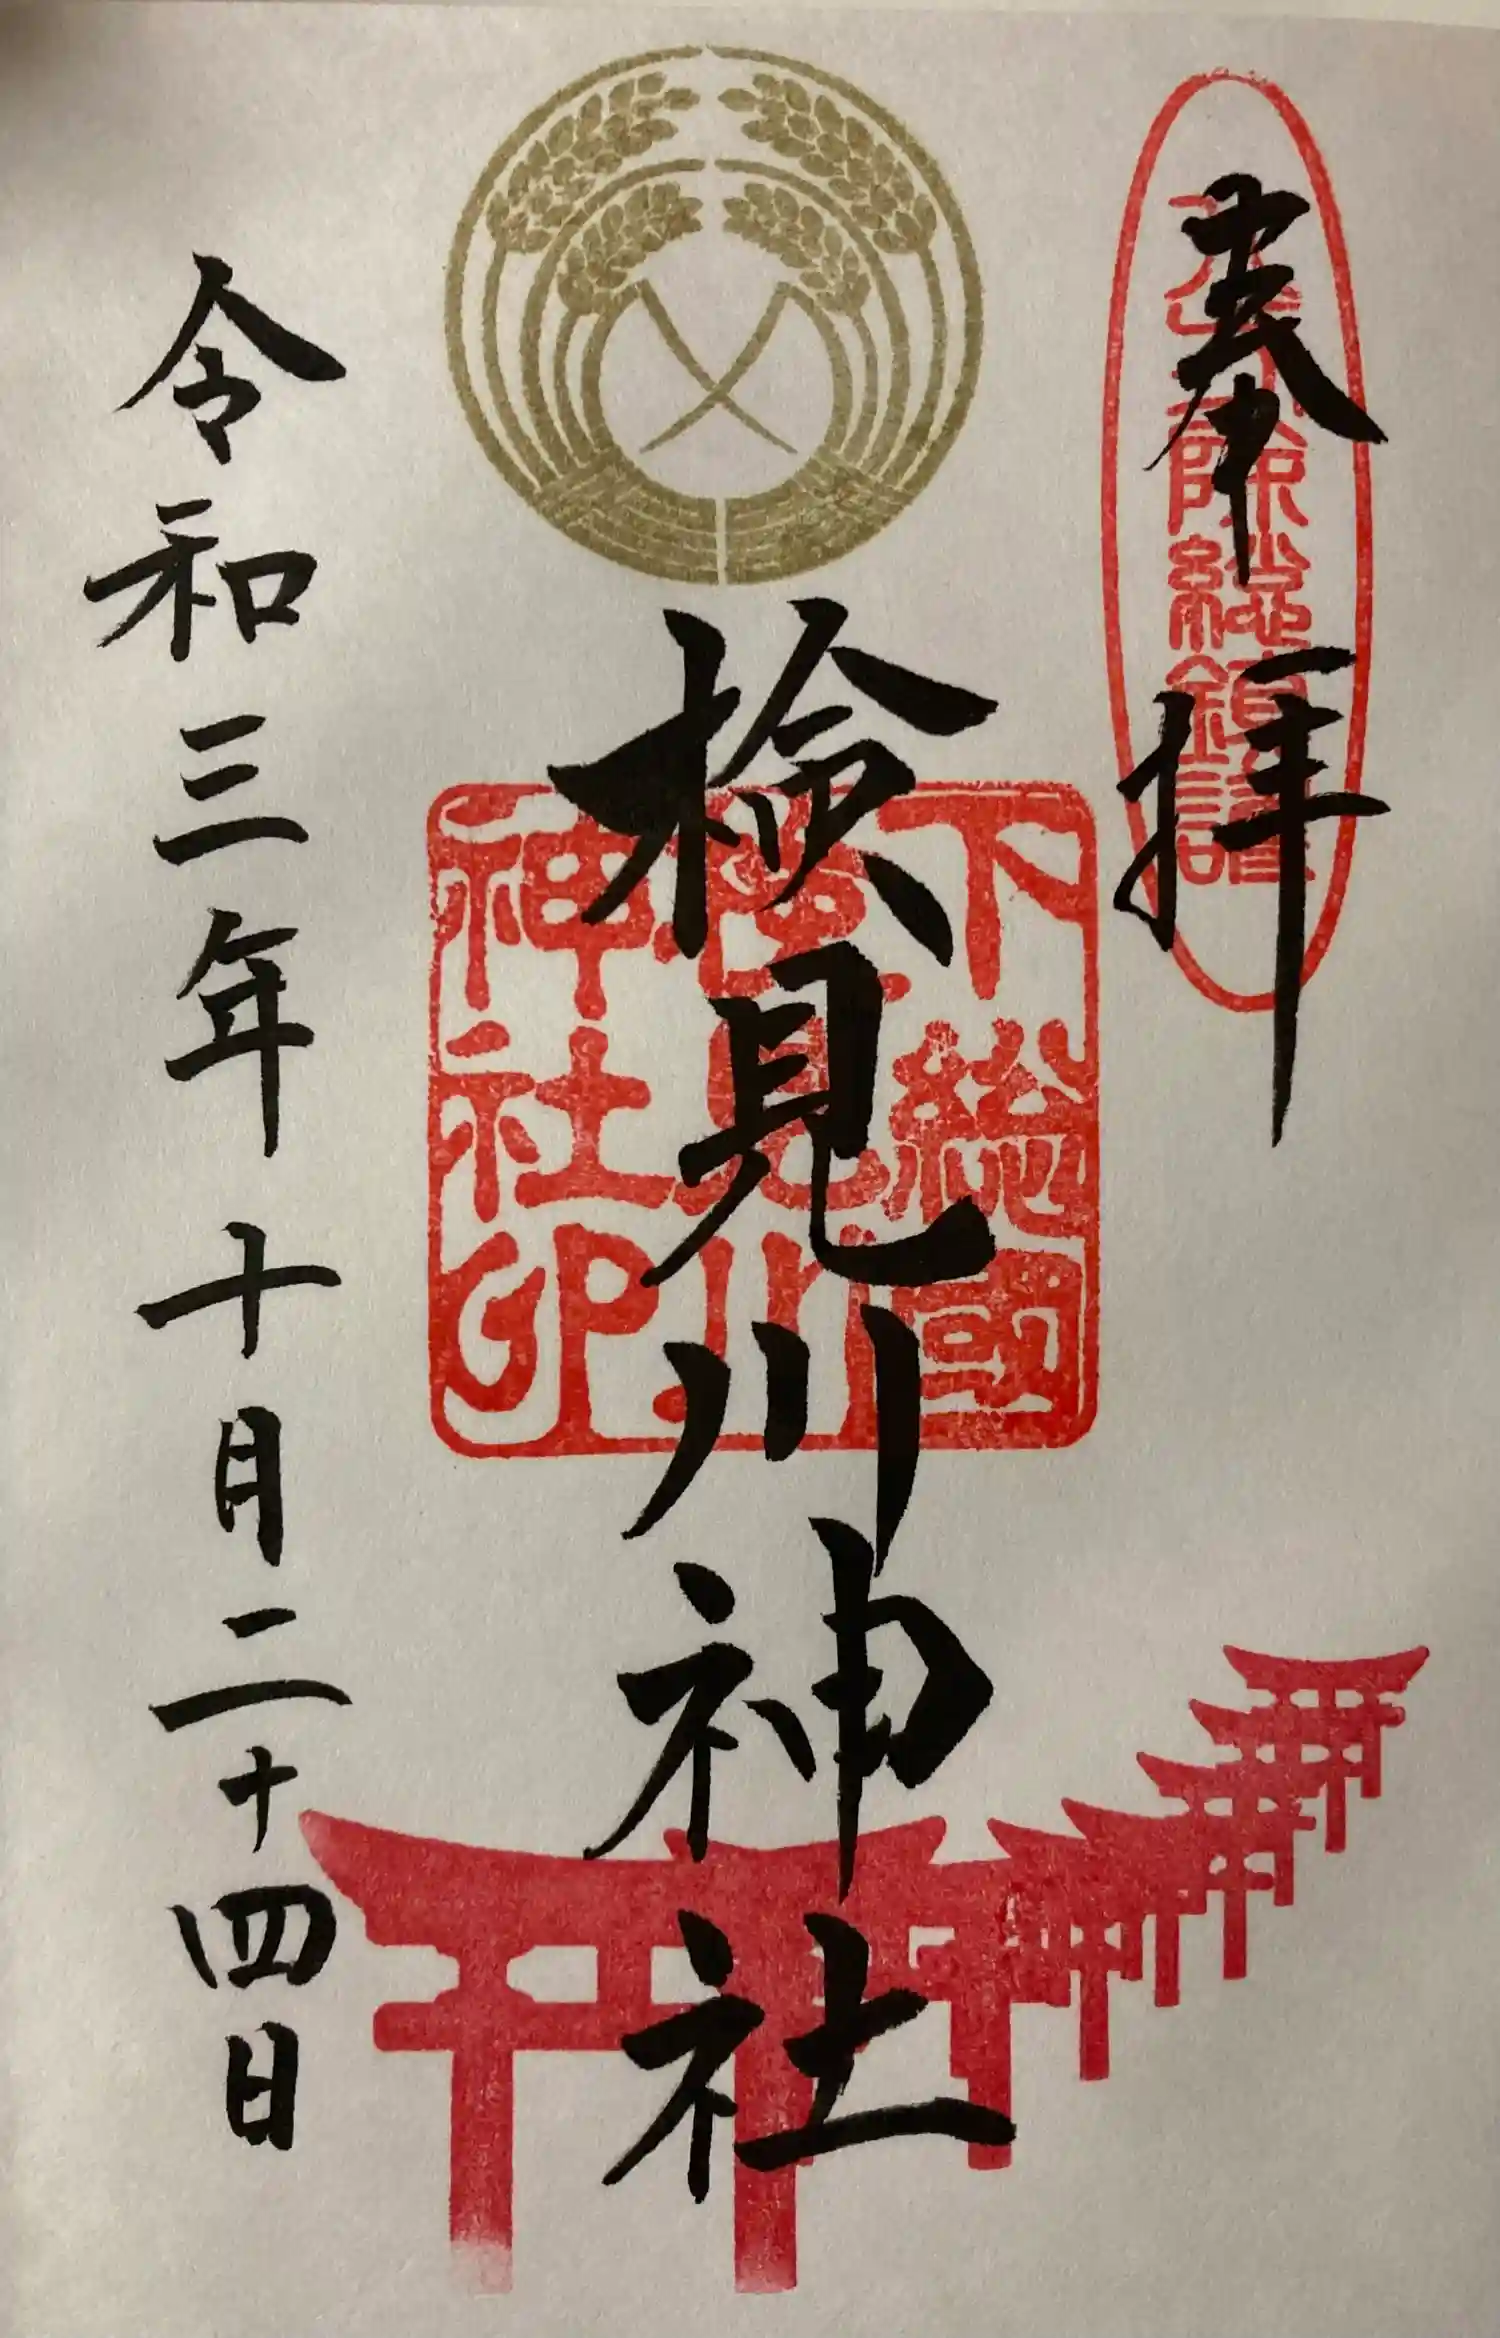 奉拝
八方除総鎮護
検見川神社
下総國
検見川
神社印
令和三年十月二十四日